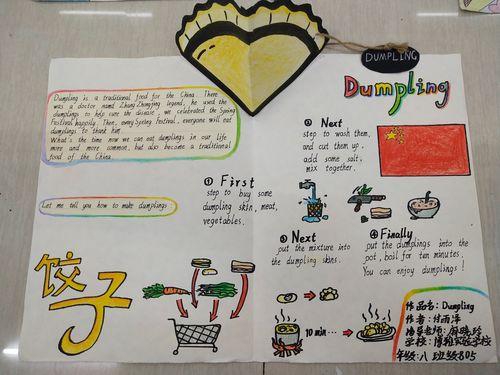 DUMPLING
Dumpling
Dumpling is a traditional food for the China. There
was a doctor name Zhang Zhongjing legend, he used the
dumplings to help cure the disease, we celebrated the Spring
Festival happily. Then, every Spring Festival, everyone will eat
dumplings to thank him.
What's the time now we can eat dumplings in our life
more and more common, but also become a traditional
food of the China.
Let me tell you how to make dumplings.
① First
step to buy some
dumpling skin, meat,
vegetables.
② Next
step to wash them,
and cut them up,
add some salt,
mix together.
③ Next
put the mixture into
the dumpling skins.
④ Finally
put the dumplings into the
pot, boil for ten minutes.
You can enjoy dumplings!
10 min...
饺子
作品名: Dumpling
作者: 付雨泽
指导老师:
学校: 博雅实验学校
年级: 八 班级 805